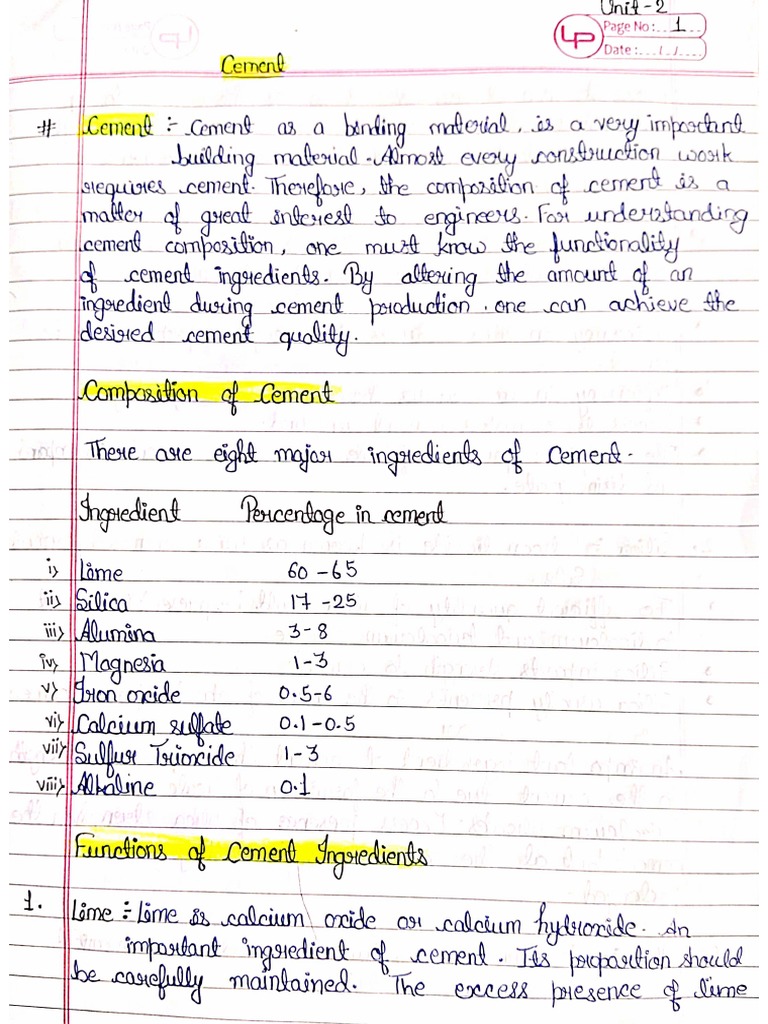 Unit-2
LP
Page No: 1
Date: / /
Cement
# Cement :- Cement as a binding material, is a very important
building material. Almost every construction work
requires cement. Therefore, the composition of cement is a
matter of great interest to engineers. For understanding
cement composition, one must know the functionality
of cement ingredients. By altering the amount of an
ingredient during cement production. one can achieve the
desired cement quality.
Composition of Cement
There are eight major ingredients of Cement.
Ingredient Percentage in cement
i) Lime 60-65
ii) Silica 17-25
iii) Alumina 3-8
iv) Magnesia 1-3
v) Iron oxide 0.5-6
vi) Calcium sulfate 0.1-0.5
vii) Sulfur Trioxide 1-3
viii) Alkaline 0.1
Functions of Cement Ingredients
1. Lime :- Lime is calcium oxide or calcium hydroxide. An
important ingredient of cement. Its proportion should
be carefully maintained. The excess presence of lime